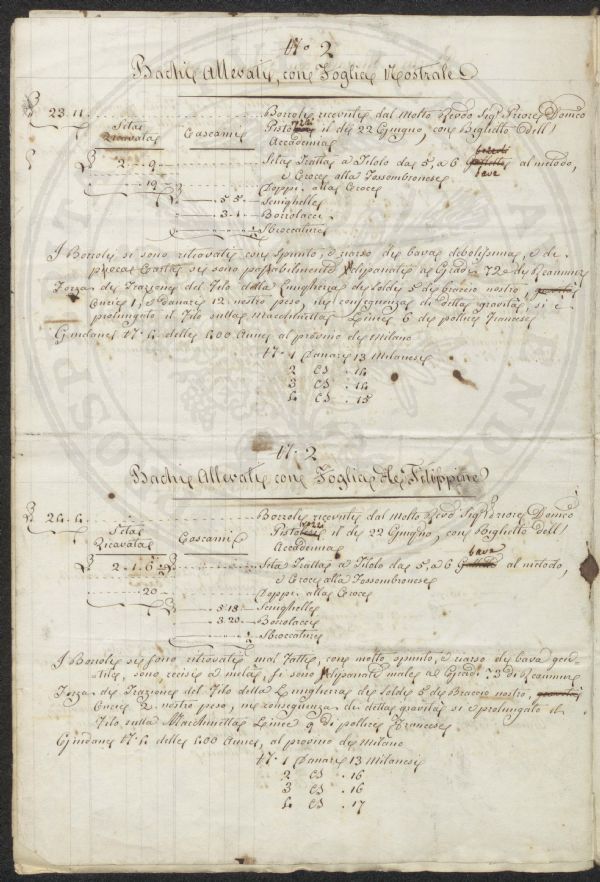 N.º 2
Bachi Allevati, con Foglia Nostrale
23.11 Bozzoli ricevuti dal Molto Revdo Sigr. Priore Domco
Seta Ricavata Gascami Pistolozzi il dì 22 Giugno, con Biglietto dell'
Accademia
2 . 9 Seta Tratta a Titolo da 5, a 6 bava al metodo,
e Croce alla Fossombronese
12 Doppi alla Croce
5 Senighella
3 . 1 Bozzolacci
Sbroccatura
I Bozzoli si sono ritrovati con spunto, e riarso di bava debolissima, e di
pocca Carta si sono passabilmente dipanati a Gradi 72 di Reaumur
Forza di Trazione del Filo della Lunghezza di Soldi 5 di braccio nostro,
Oncie 1, e danari 12 nostro peso, in conseguenza di detta gravità, si è
prolungato il Filo sulla Macchinetta Linee 6 di pollice Francese
Gindane N. 4 delle 400 Aune al provino di Milano
N. 1 Danari 13 Milanesi
2 . 14
3 . 14
4 . 15
N. 2
Bachi Allevati con Foglia delle Filippine
24.4 Bozzoli ricevuti dal Molto Revdo Sigr Priore Domco
Seta Ricavata Gascami Pistolozzi il dì 22 Giugno, con Biglietto dell'
Accademia
2 . 1 . 6 Seta Tratta a Titolo da 5, a 6 bava al metodo,
e Croce alla Fossombronese
20 Doppi alla Croce
5 18 Senighella
3 20 Bozzolacci
Sbroccatura
I Bozzoli si sono ritrovati mal fatti, con molto spunto, e riarso di bava gen-
tile, sono, recisi a metà, si sono dipanati male al Gradi 73 di Reaumur
Forza di Trazione del Filo della Lunghezza di Soldi 5 di Braccio nostro,
Oncie 2 nostro peso, in conseguenza di detta gravità si è prolungato il
Filo sulla Macchinetta Linee 9 di pollice Francese
Gindane N. 4 delle 400 Aune, al provino di Milano
N. 1 Danari 13 Milanesi
2 . 16
3 . 16
4 . 17